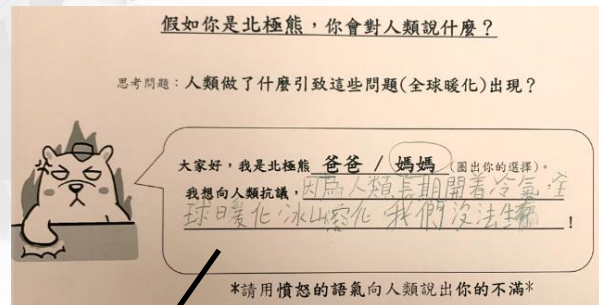 假如你是北極熊，你會對人類說什麼？
思考問題：人類做了什麼引致這些問題(全球暖化)出現？
大家好，我是北極熊 爸爸 / 媽媽 (圈出你的選擇)。
我想向人類抗議，因為人類長期開着冷氣，全
球日暖化，冰山溶化，我們沒法生！
*請用憤怒的語氣向人類說出你的不滿*